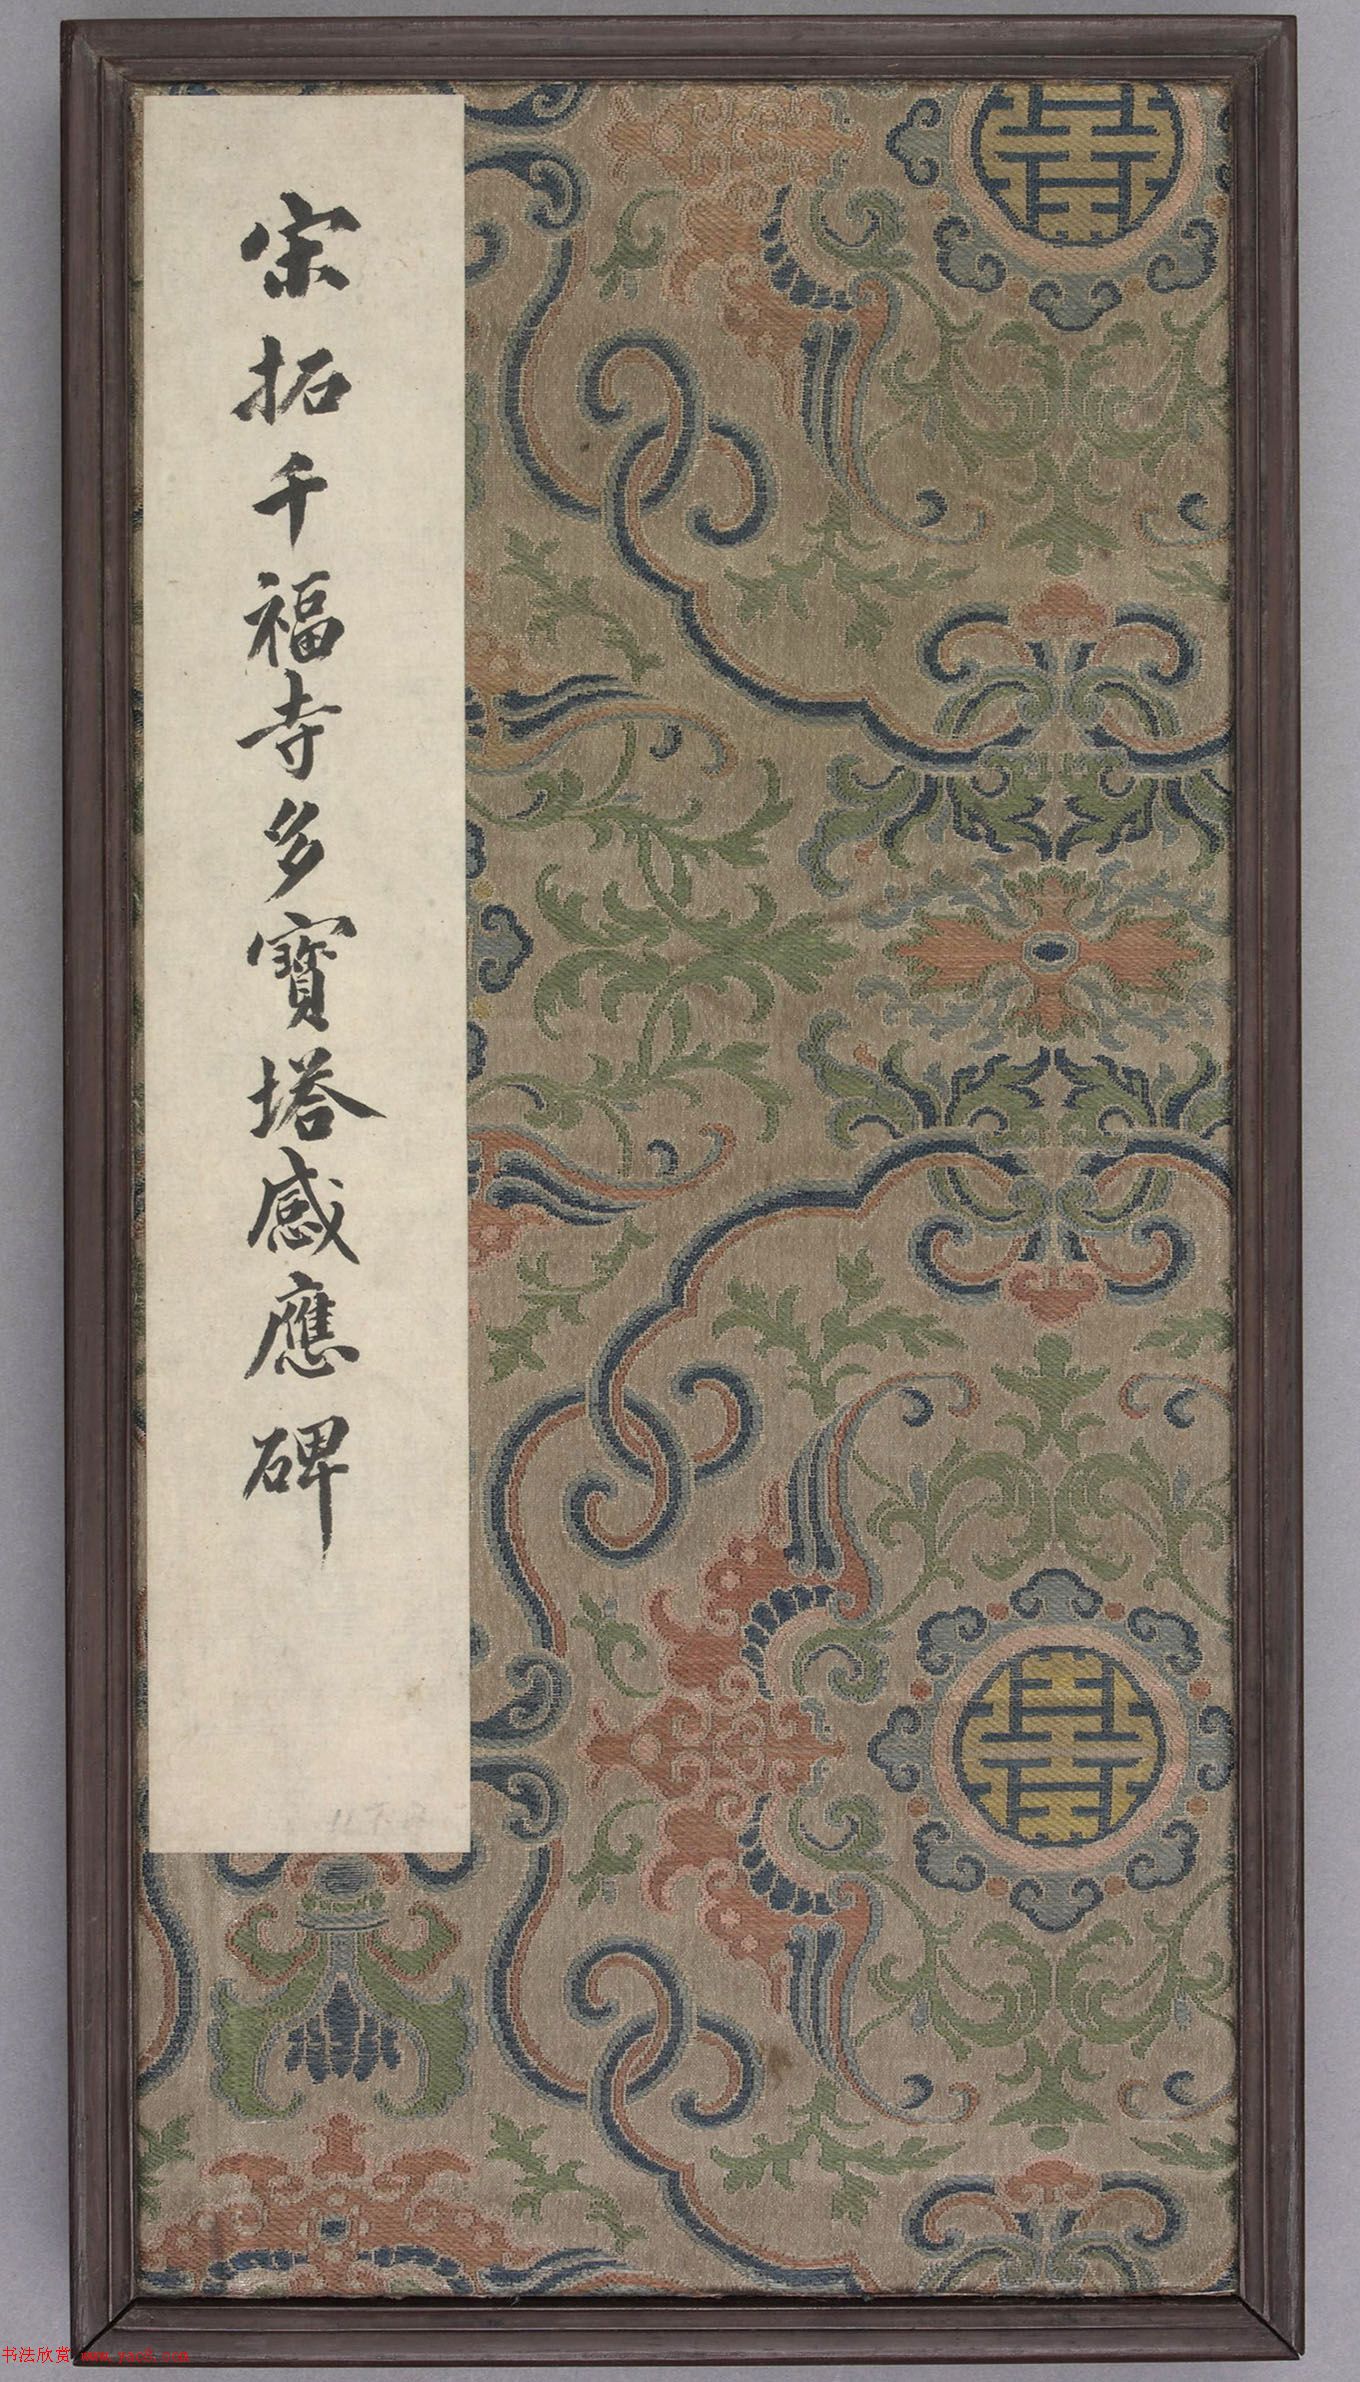 宋拓千福寺多寶塔感應碑
书法欣赏 www.yac8.com